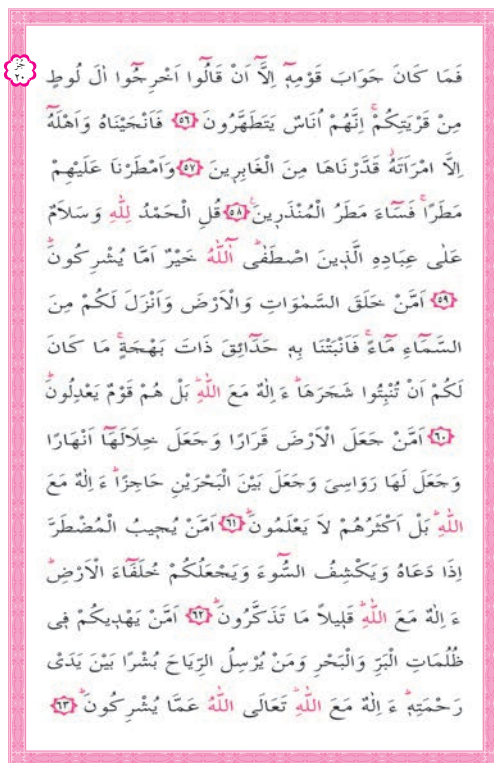 جُزْ
٢٠
فَمَا كَانَ جَوَابَ قَوْمِهٖٓ اِلَّآ اَنْ قَالُٓوا اَخْرِجُٓوا اٰلَ لُوطٍ
مِنْ قَرْيَتِكُمْۚ اِنَّهُمْ اُنَاسٌ يَتَطَهَّرُونَ ﴿٥٦﴾ فَاَنْجَيْنَاهُ وَاَهْلَهُٓ
اِلَّا امْرَاَتَهُۘ قَدَّرْنَاهَا مِنَ الْغَابِرٖينَ ﴿٥٧﴾ وَاَمْطَرْنَا عَلَيْهِمْ
مَطَرًاۚ فَسَٓاءَ مَطَرُ الْمُنْذَرٖينَ۟ ﴿٥٨﴾ قُلِ الْحَمْدُ لِلّٰهِ وَسَلَامٌ
عَلٰى عِبَادِهِ الَّذٖينَ اصْطَفٰىۜ آٰللّٰهُ خَيْرٌ اَمَّا يُشْرِكُونَۜ
﴿٥٩﴾ اَمَّنْ خَلَقَ السَّمٰوَاتِ وَالْاَرْضَ وَاَنْزَلَ لَكُمْ مِنَ
السَّمَٓاءِ مَٓاءًۚ فَاَنْبَتْنَا بِهٖ حَدَٓائِقَ ذَاتَ بَهْجَةٍۚ مَا كَانَ
لَكُمْ اَنْ تُنْبِتُوا شَجَرَهَاۜ ءَاِلٰهٌ مَعَ اللّٰهِۜ بَلْ هُمْ قَوْمٌ يَعْدِلُونَۜ
﴿٦٠﴾ اَمَّنْ جَعَلَ الْاَرْضَ قَرَارًا وَجَعَلَ خِلَالَهَٓا اَنْهَارًا
وَجَعَلَ لَهَا رَوَاسِىَ وَجَعَلَ بَيْنَ الْبَحْرَيْنِ حَاجِزًاۜ ءَاِلٰهٌ مَعَ
اللّٰهِۜ بَلْ اَكْثَرُهُمْ لَا يَعْلَمُونَۜ ﴿٦١﴾ اَمَّنْ يُجٖيبُ الْمُضْطَرَّ
اِذَا دَعَاهُ وَيَكْشِفُ السُّٓوءَ وَيَجْعَلُكُمْ خُلَفَٓاءَ الْاَرْضِۜ
ءَاِلٰهٌ مَعَ اللّٰهِۜ قَلٖيلًا مَا تَذَكَّرُونَۜ ﴿٦٢﴾ اَمَّنْ يَهْدٖيكُمْ فٖى
ظُلُمَاتِ الْبَرِّ وَالْبَحْرِ وَمَنْ يُرْسِلُ الرِّيَاحَ بُشْرًا بَيْنَ يَدَىْ
رَحْمَتِهٖۜ ءَاِلٰهٌ مَعَ اللّٰهِۜ تَعَالَى اللّٰهُ عَمَّا يُشْرِكُونَۜ ﴿٦٣﴾